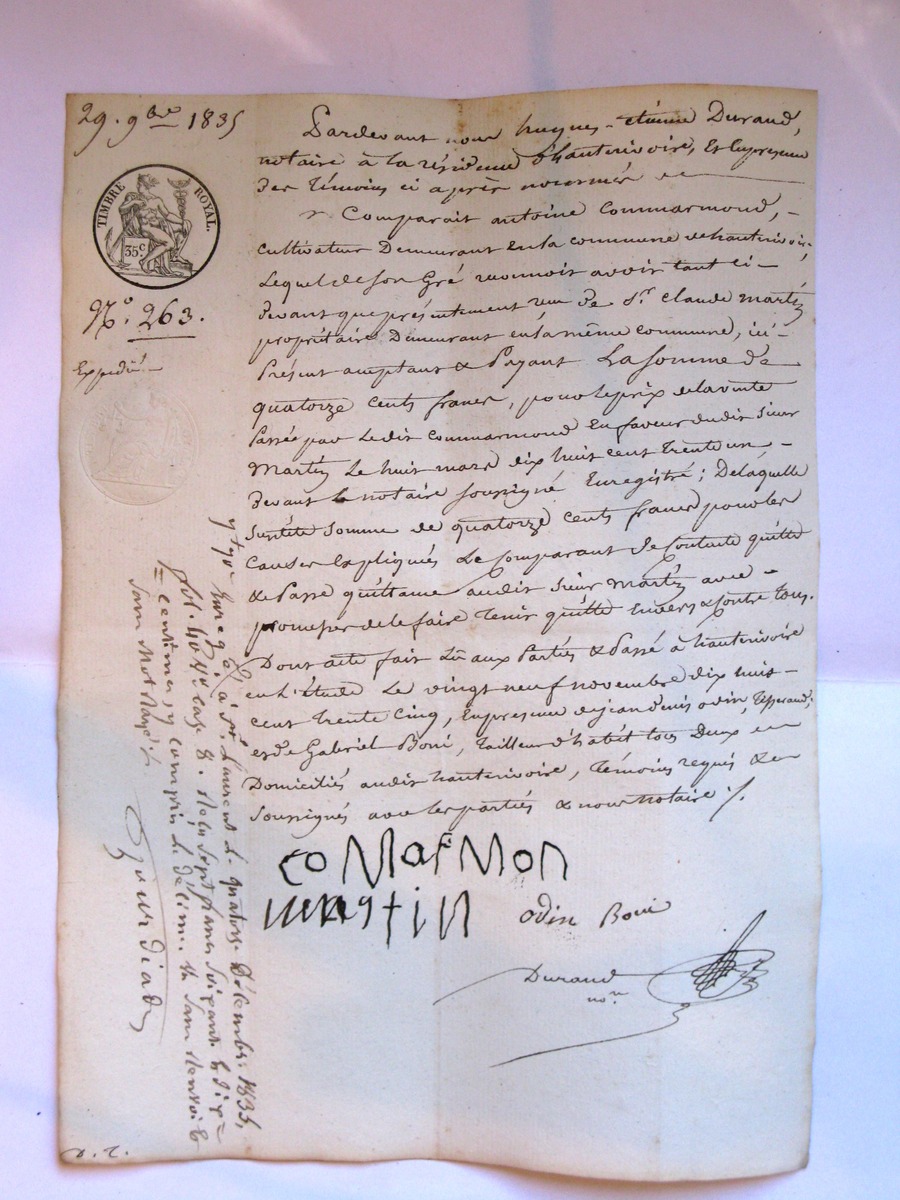 29. 9bre 1835
TIMBRE ROYAL.
35 c.
N.o 263.
Expédié
Pardevant nous hugues-étienne Durand,
notaire à la résidence d'hauterivoire, Et En presence
des témoins ci après nommés
Comparait antoine Commarmond,
cultivateur Demeurant En la commune d'hauterivoire,
Lequel de son Gré reconnoit avoir tant ci-
devant que présentement reçu de Sr. claude martin
propriétaire Demeurant en la même commune, ici
Présent acceptant & Payant La somme de
quatorze cents francs, pour le prix de la vente
Passée par Le dit commarmond En faveur du dit sieur
Martin Le huit mars dix huit cent trente un,
devant le notaire soussigné Enregistré; De laquelle
susdite somme de quatorze cents francs pour les
causes Expliquées Le comparant se contente quitte
& Passe quittance audit sieur martin avec
promesse de le faire tenir quitte Envers & contre tous.
Dont acte fait Lu aux Parties & Passé à hauterivoire
en L'étude Le vingt neuf novembre dix huit
cent trente cinq, En presence de jean denis odin, tisserand,
et de Gabriel Boni, tailleur d'habit tous Deux
Domiciliés audit hauterivoire, témoins requis &
soussignés avec les parties & nous notaire ./.
coMarMon
martin
odin Boni
Durand
nore
Enreg. à St. Laurent le quatorze Décembre 1835,
fol. 40 Vo case 8. Reçu sept francs soixante & dix
centimes, y compris le décime. sans renvoi &
sans mot rayé ./.